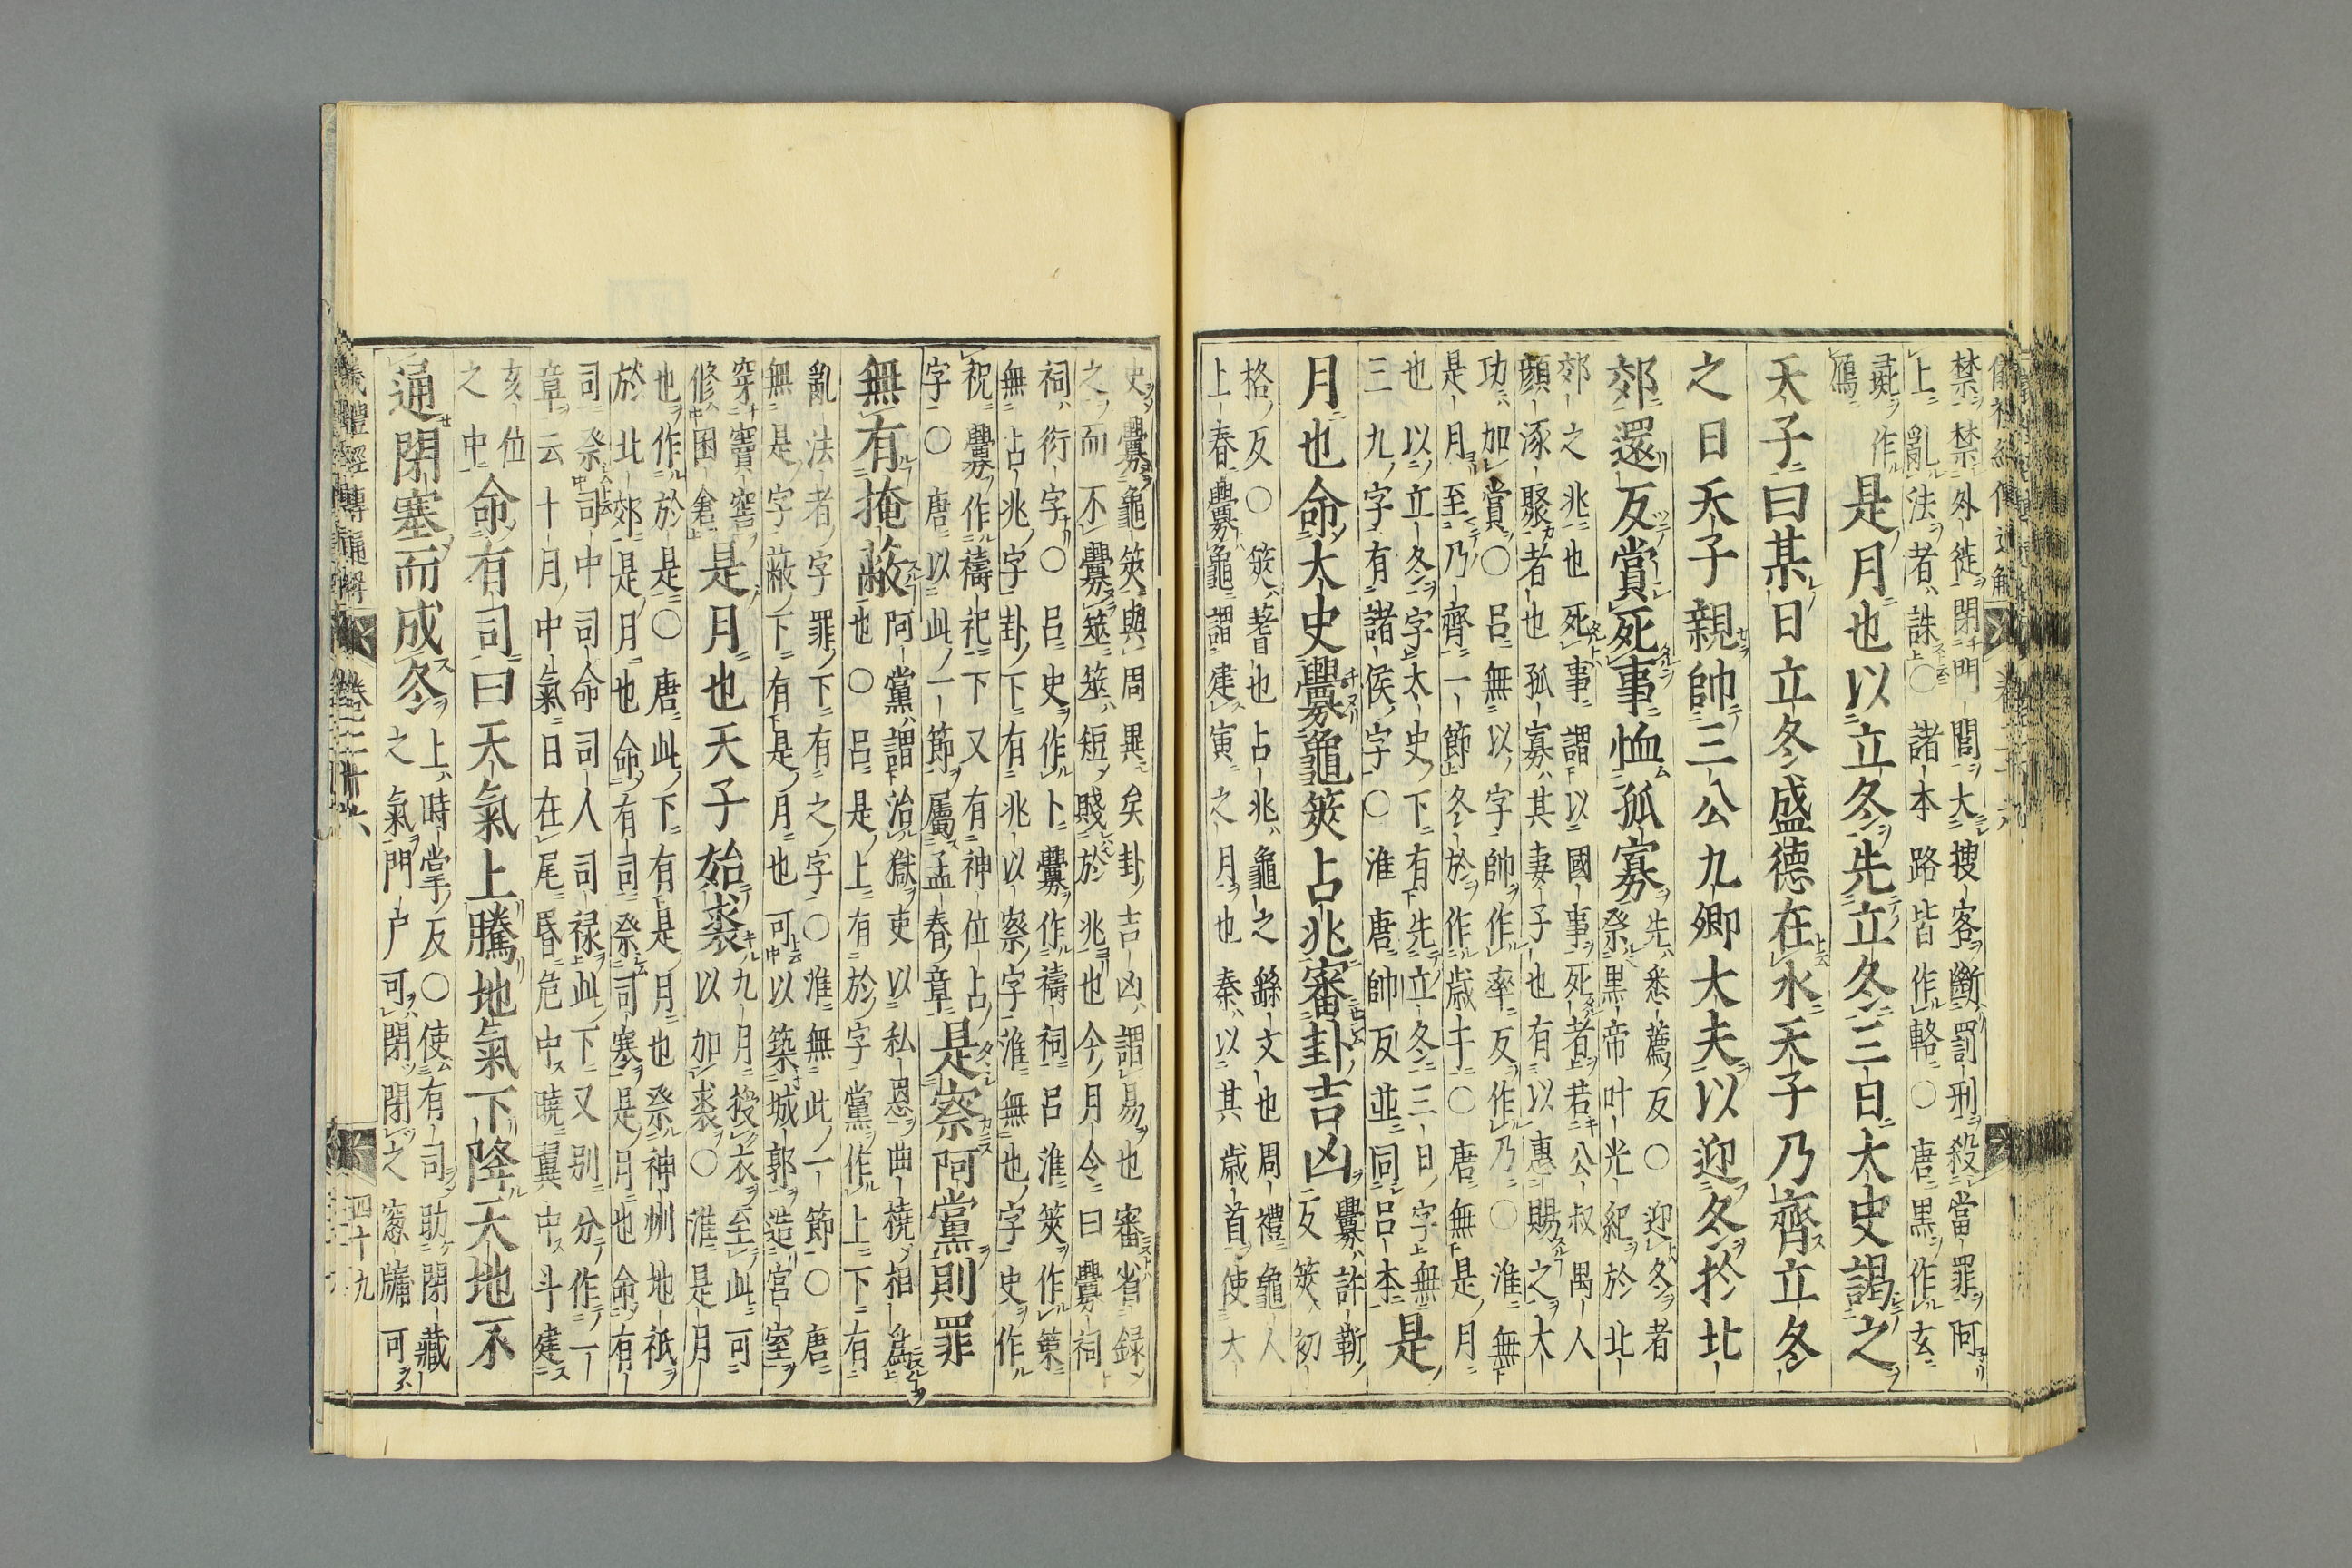 禁禁外徙閉門閭大搜客斷罰刑殺當罪阿
上亂法者誅○諸本路皆作輅○唐黑作玄
彘作
鴈
是月也以立冬先立冬三日太史謁之
天子曰某日立冬盛德在水天子乃齊立冬
之日天子親帥三公九卿大夫以迎冬於北
郊還反賞死事恤孤寡
先悉薦反○迎冬者
祭黑帝叶光紀於北
郊之兆也死事謂以國事死者若公叔禺人
顏涿聚者也孤寡其妻子也有以惠賜之大
功加賞○呂無以字帥作率反作乃○淮無
是月至乃齊一節冬於作歲十○唐無是月
也以立冬字太史下有先立冬三日字無
三九字有諸侯字○淮唐帥反並同呂本
是
月也命太史釁龜筴占兆審卦吉凶
釁許靳
反筴初
格反○筴蓍也占兆龜之繇文也周禮龜人
上春釁龜謂建寅之月也秦以其歲首使大
史釁龜筴與周異矣卦吉凶謂易也審省録
之而不釁筮筮短賤於兆也今月令曰釁祠
祠衍字○呂史作卜釁作禱祠呂淮筴作
無占兆字卦下有兆以察字淮無也字史作
祝釁作禱祀下又有神位占
字○唐以此一節屬孟春章
是察阿黨則罪
無有掩蔽
阿黨謂治獄吏以私恩曲橈相為
也○呂是上有於字黨作上下有
亂法者字罪下有之字○淮無此一節○唐
無是字蔽下有是月也可以築城郭造宮室
穿竇窖
修囷倉
是月也天子始裘
九月授衣至此可
以加裘○淮是月
也作於是○唐此下有是月也祭神州地祇
於北郊是月也命有司祭司寒是月也命有
司祭司中司命司人司禄此下又别分作一
章云十月中氣日在尾昏危中曉翼中斗建
亥位
之中
命有司曰天氣上騰地氣下降天地不
通閉塞而成冬
上時掌反○使有司助閉藏
之氣門户可閉閉之窻牖可
儀禮經傳通解 卷二十六 四十九